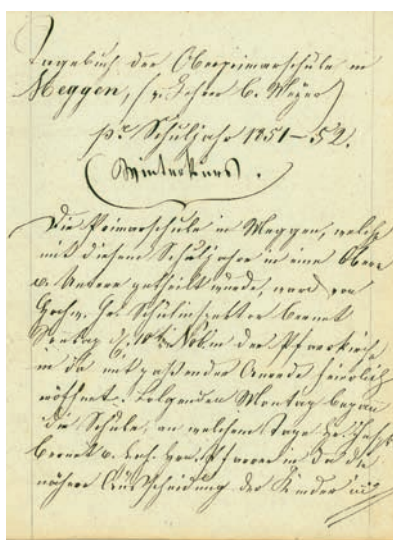 Tagebuch der Oberprimarschule in
Meggen, (v. Lehrer C. Meyer)
pr. Schuljahr 1851–52.
(Winterkurs).
Die Primarschule in Meggen, welche
mit diesem Schuljahre in eine Obere
u. Untere getheilt wurde, ward von
Hochw. Hr. Schulinspektor Bernet
Sonntag d. 10t. Nob. in der Pfarrkirche
in da mit paßender Anrede feierlich
eröffnet. Folgenden Montag begann
die Schule, an welchem Tage Hr.
Bernet u. Hr. Pfarrer in da die
nähere Ausscheidung der Kinder